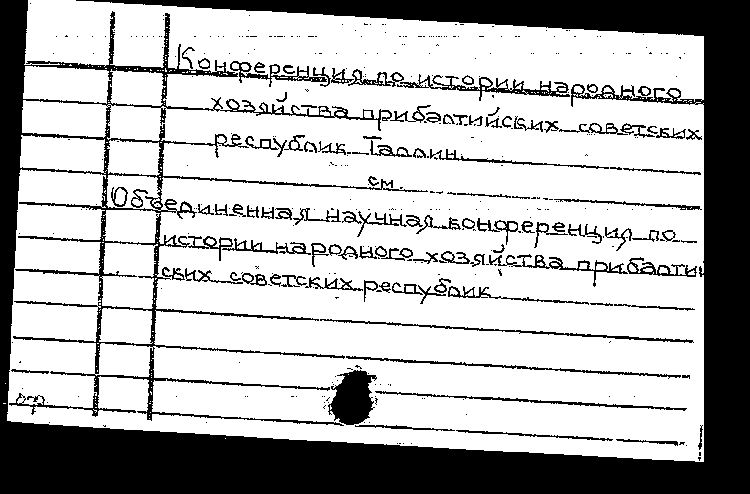 Конференция по истории народного
хозяйства прибалтийских советских
республик Таллин.
см.
Объединенная научная конференция по
истории народного хозяйства прибалтий
ских советских республик